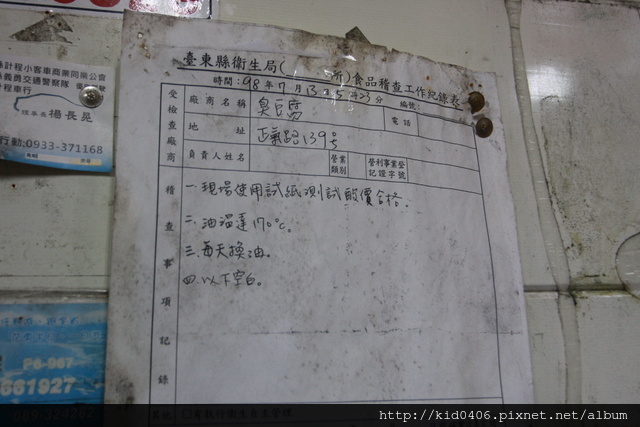 臺東縣衛生局(　　所)食品稽查工作紀錄表
時間：98年7月13日15時23分 編號：
受檢查廠商
廠商名稱 臭豆腐 電話
地址 正氣路139號
負責人姓名 營業類別 營利事業登記證字號
稽查事項記錄
一.現場使用試紙測試酸價合格。
二.油溫達170°C。
三.每天換油。
四.以下空白。
計程小客車商業同業公會
義勇交通警察隊
計程車行
楊長晃
行動:0933-371168
P6-967
661927
089-324282
http://kid0406.pixnet.net/album